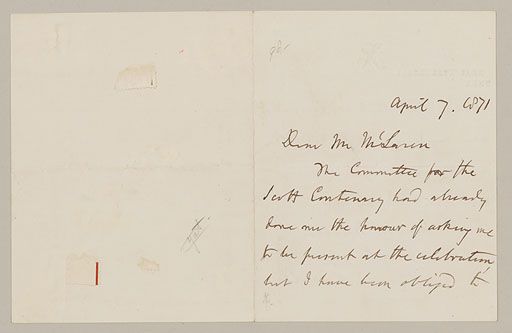 April 7. 1871
Dear Mr McLaren
The Committee for the
Scott Centenary had already
done me the honour of asking me
to be present at the celebration,
but I have been obliged to